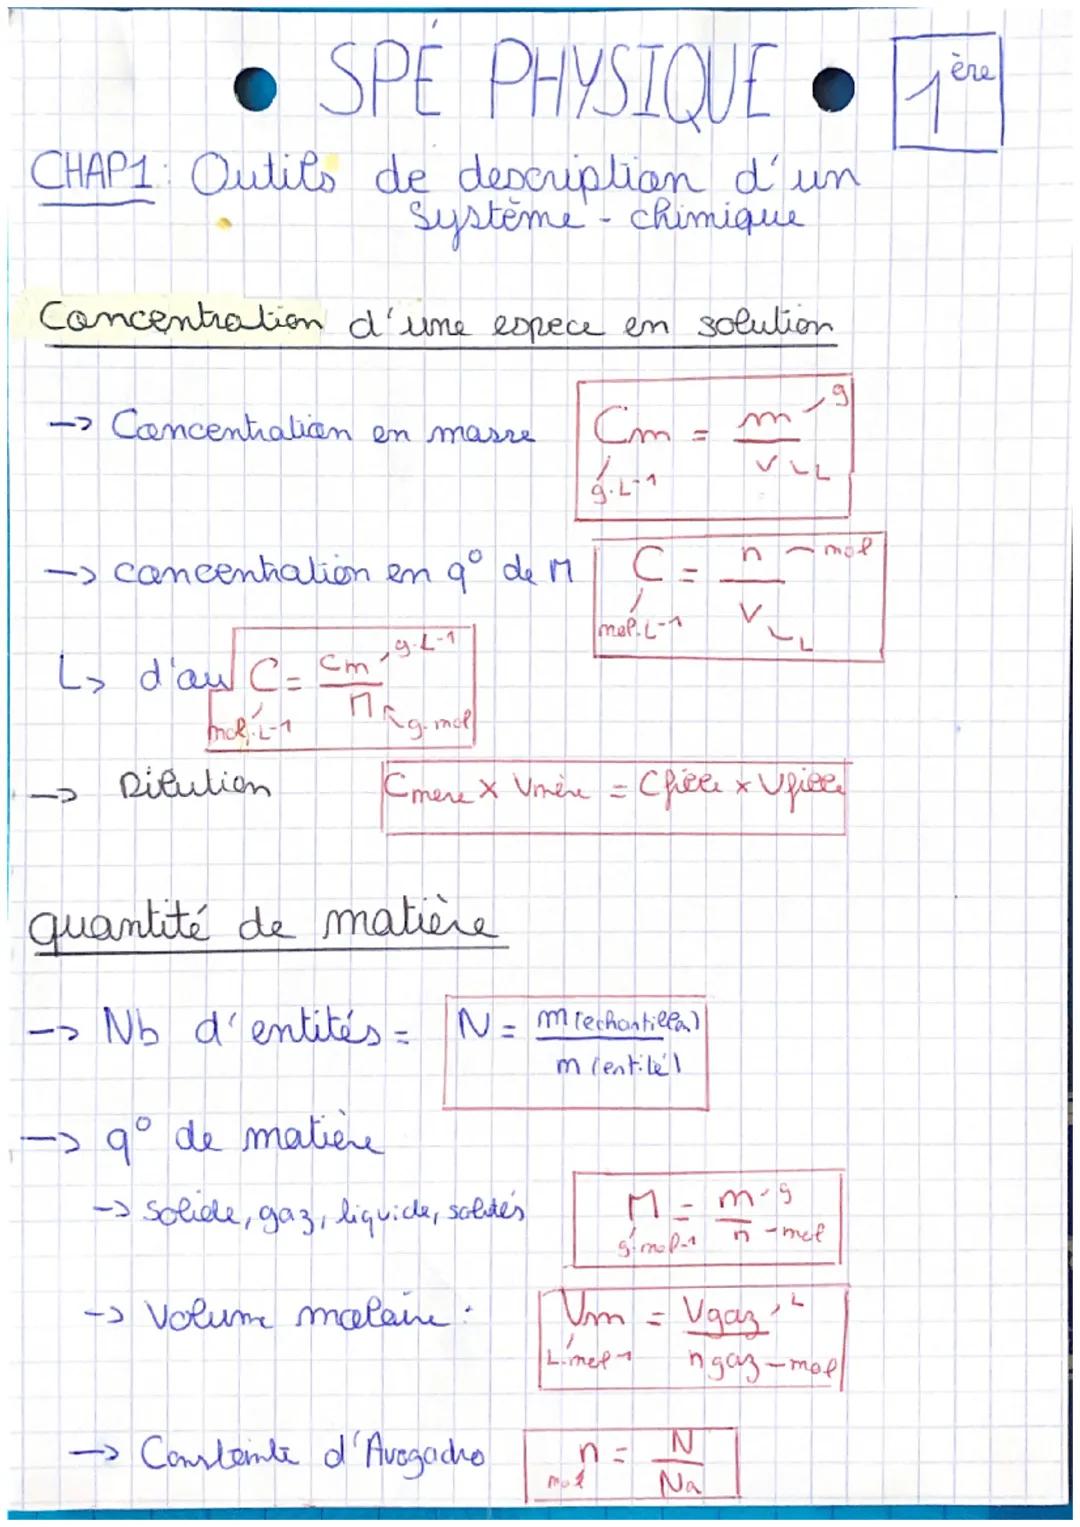 • SPÉ PHYSIQUE • 1ère
CHAP1: Outils de description d'un
système - chimique
Concentration d'une espece en solution
-> Concentration en masse Cm = m/V
g
g.L-1 L
-> concentration en q° de M C = n/V
mol
mol.L-1 L
L> d'au C = Cm/M
g.L-1
mol.L-1 g.mol
-> Dilution Cmere x Vmère = Cfille x Vfille
quantité de matière
-> Nb d'entités = N = m(echantillon)/m(entité)
-> q° de matière
-> solide, gaz, liquide, solutés M = m/n
g
g.mol-1 mol
-> Volume molaire : Vm = Vgaz/ngaz
L
L.mol-1 mol
-> Constante d'Avogadro n = N/Na
mol